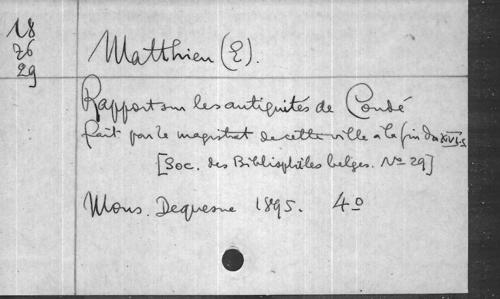 18
76
29
Matthieu (E).
Rapport sur les antiquités de Condé
fait par le magistrat de cette ville à la fin du XVIe s
[Soc. des Bibliophiles belges. No 29]
Mons. Dequesne 1895. 4o